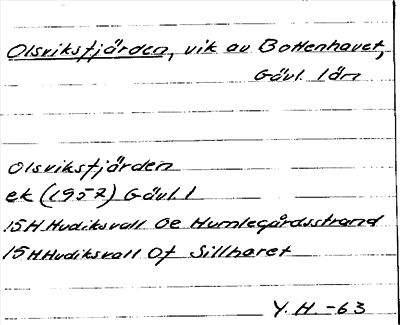 Olsviksfjärden, vik av Bottenhavet,
Gävl. län
Olsviksfjärden
ek (1957) Gävl. l
15H Hudiksvall 0e Humlegårdsstrand
15H Hudiksvall 0f Sillharet
Y. H. -63